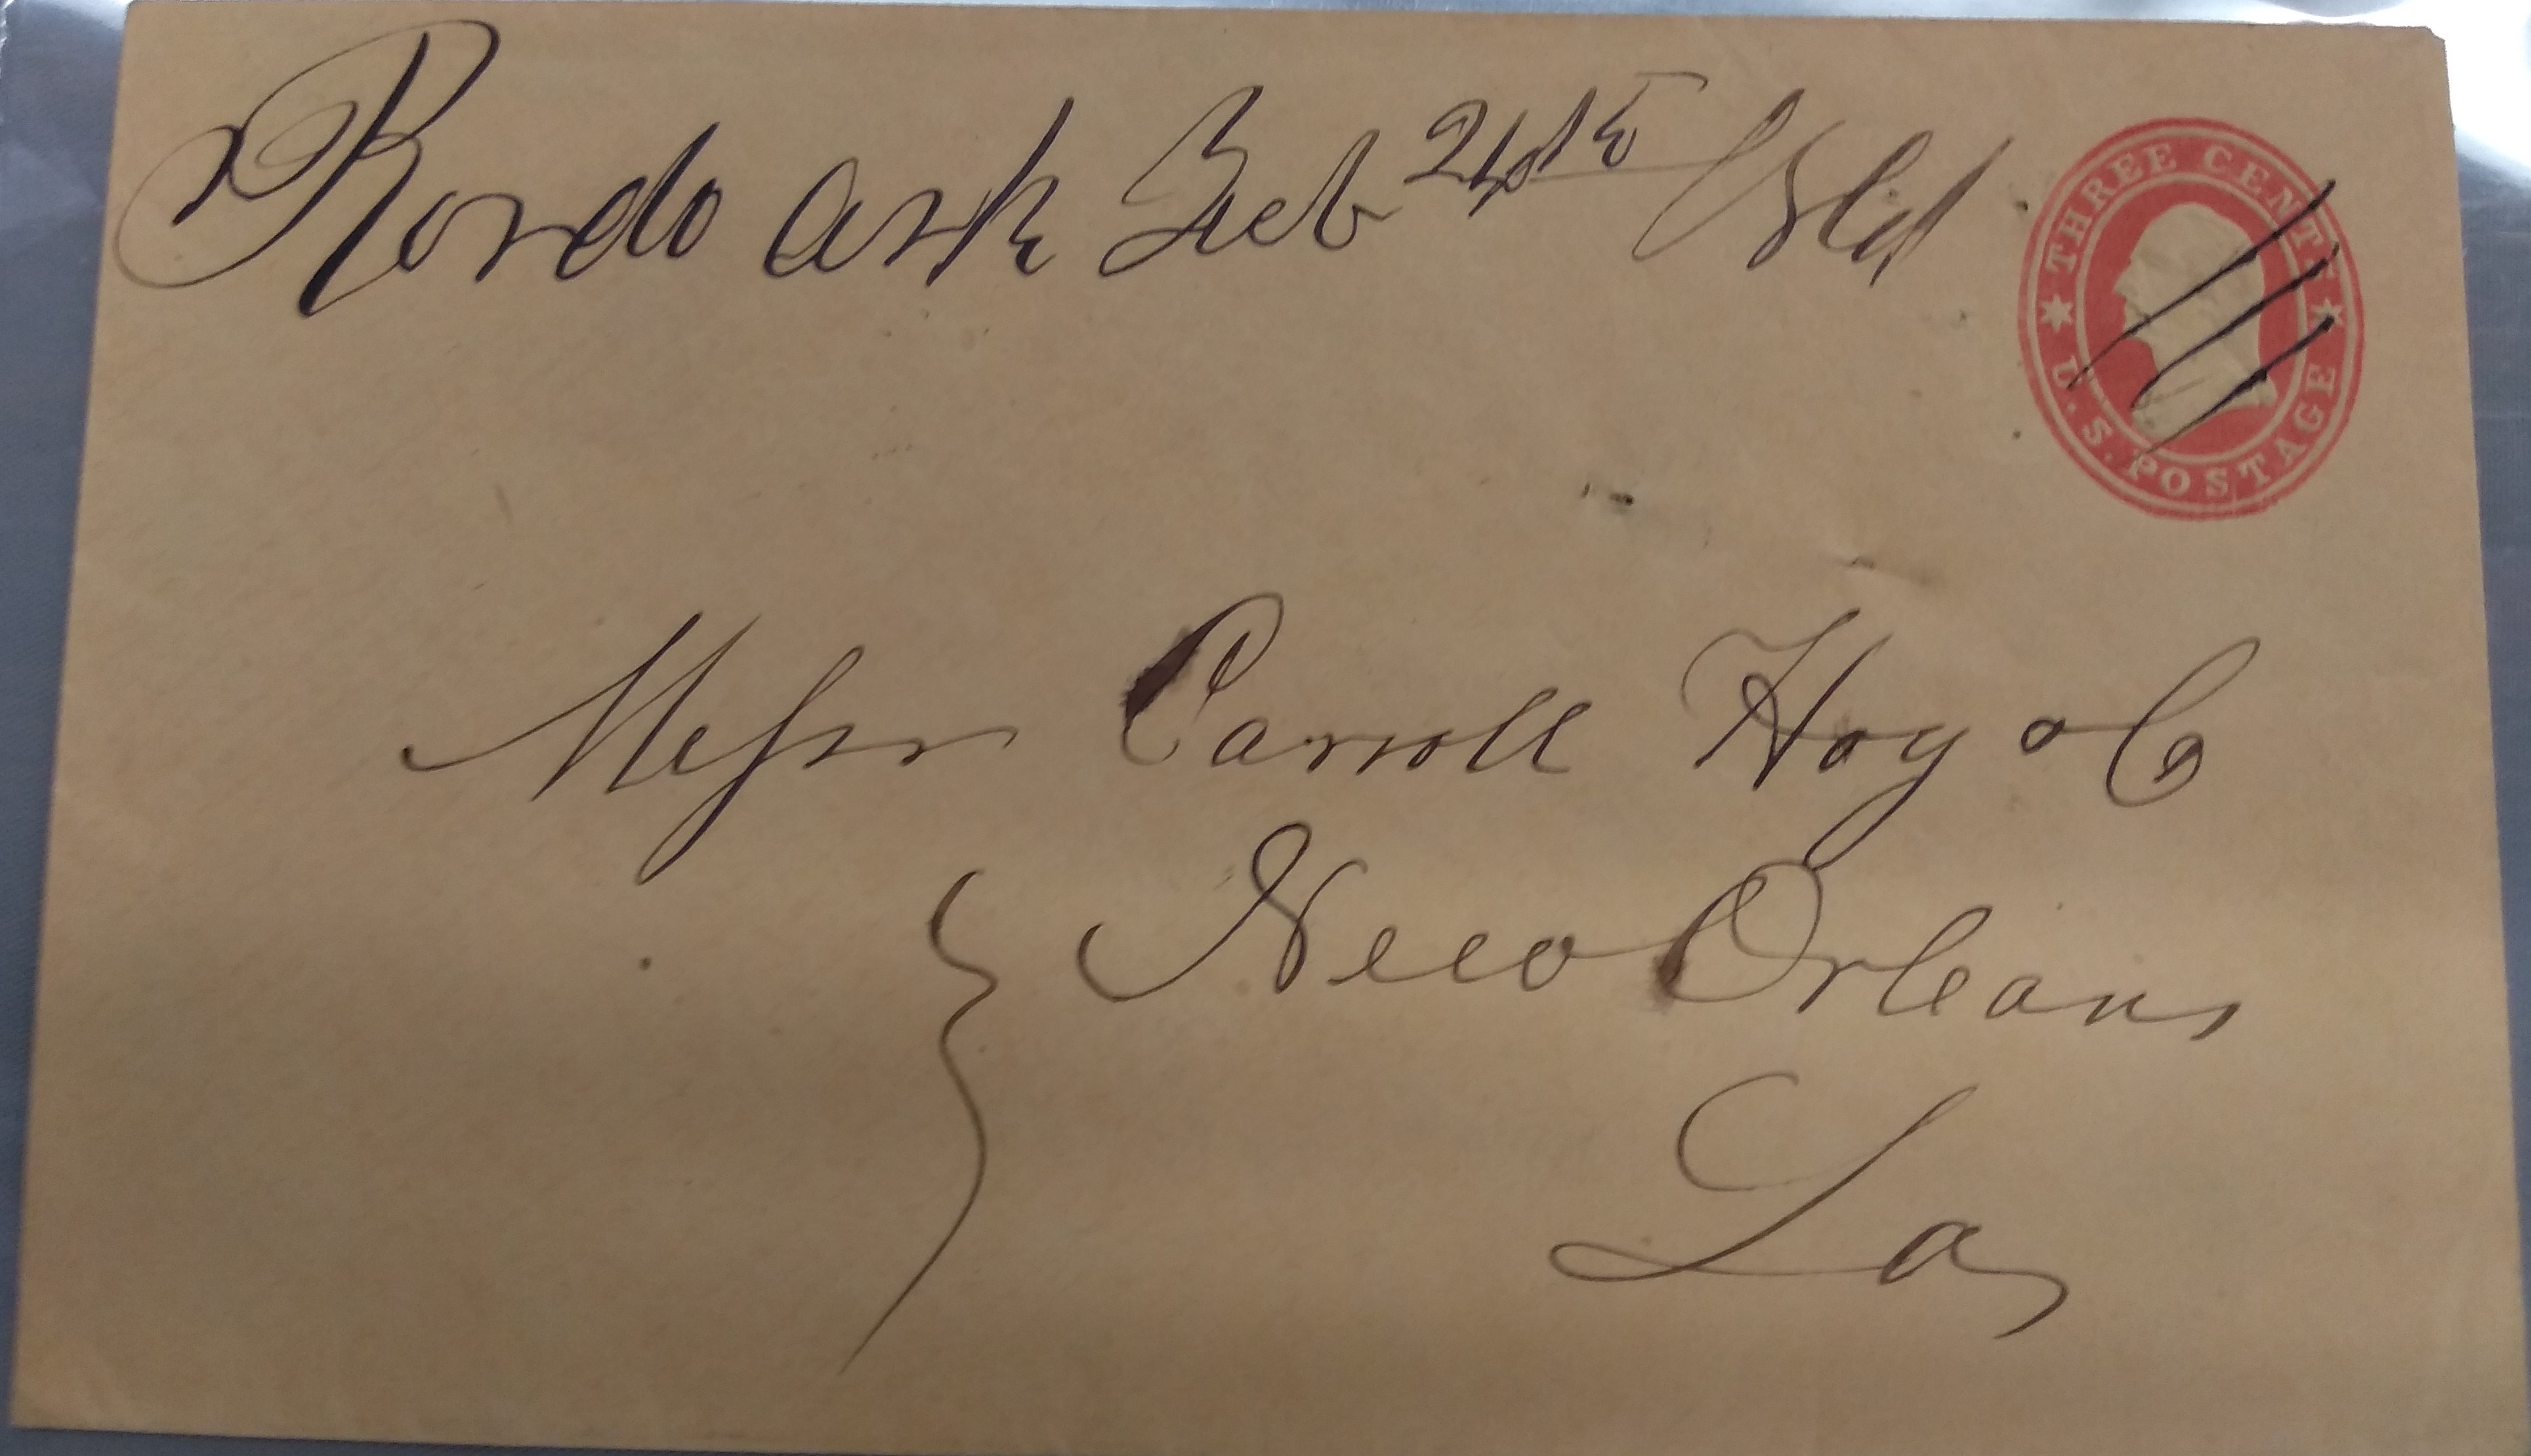 Rondo Ark Feb
THREE CENTS
U.S. POSTAGE
Messrs Carroll Hoy & Co
New Orleans
La